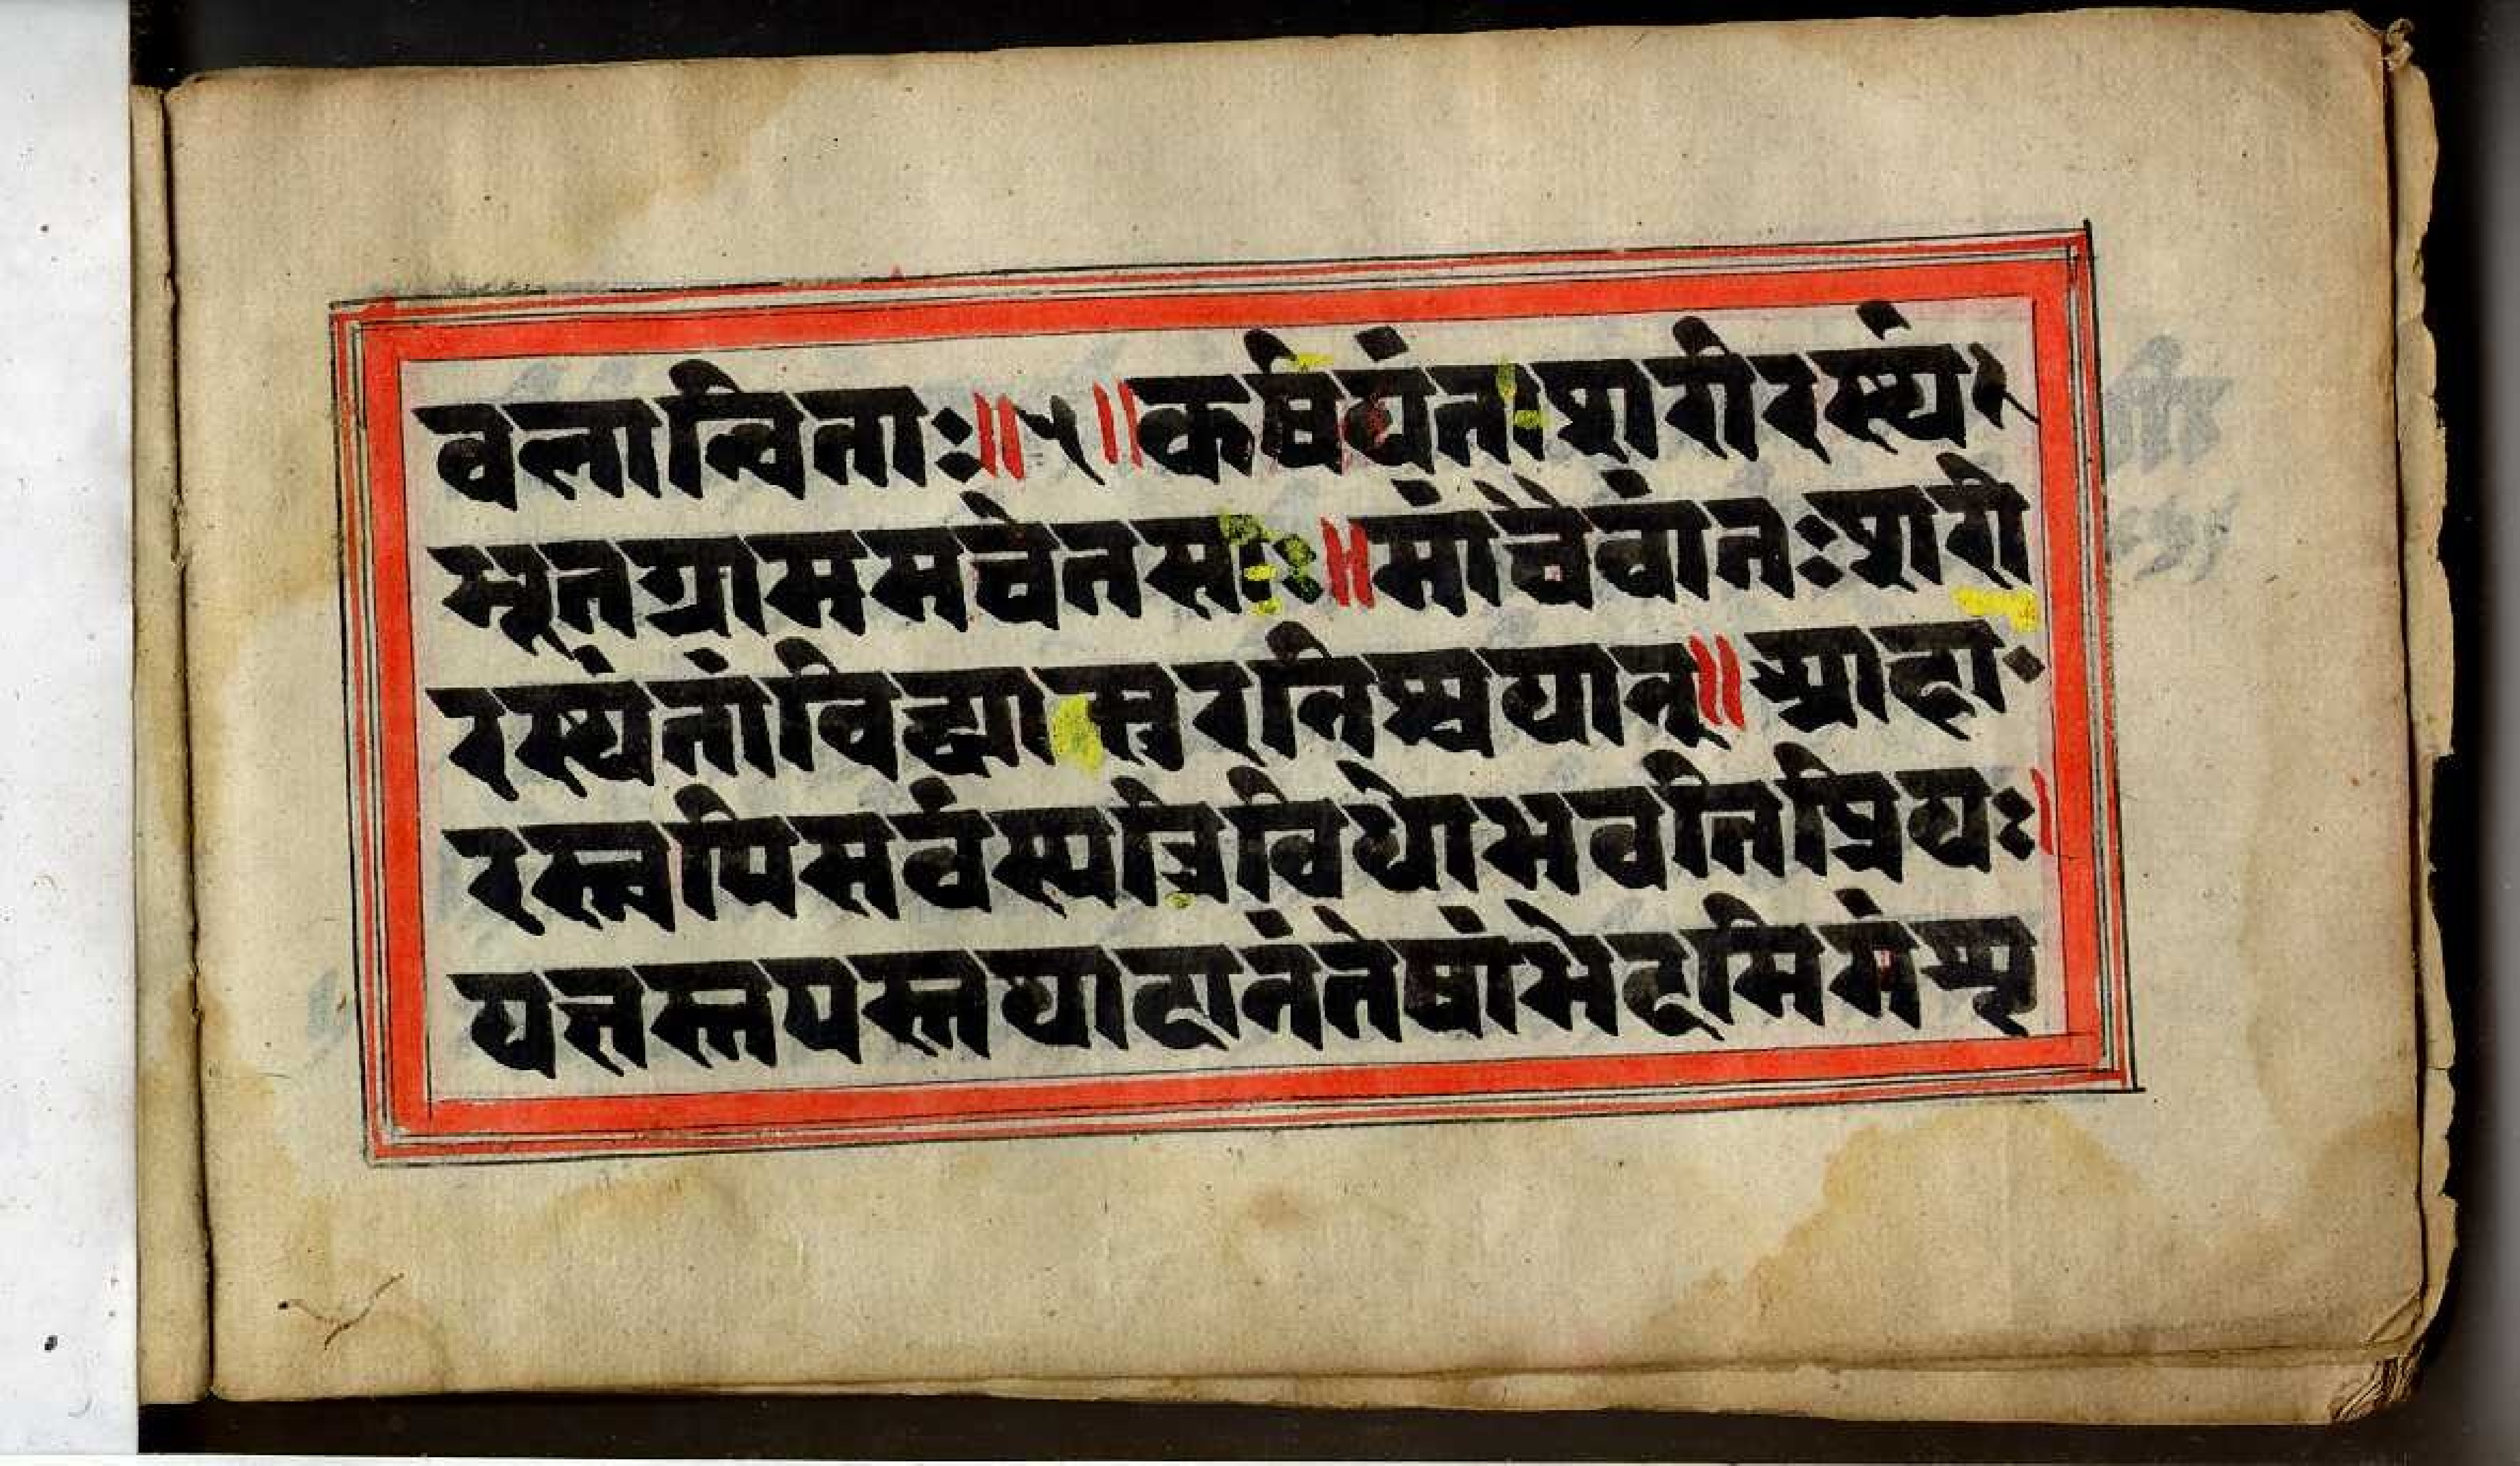 वलान्विताः॥५॥कर्षियंतःशरीरस्थं
भूतग्राममचेतसः॥मांचैवांतःशरी
रस्थंतांविद्यासुरनिश्चयान्॥आहा
रस्त्वपिसर्वस्यत्रिविधोभवतिप्रियः।
यज्ञस्तपस्तथादानंतेषांभेदमिमंशृ